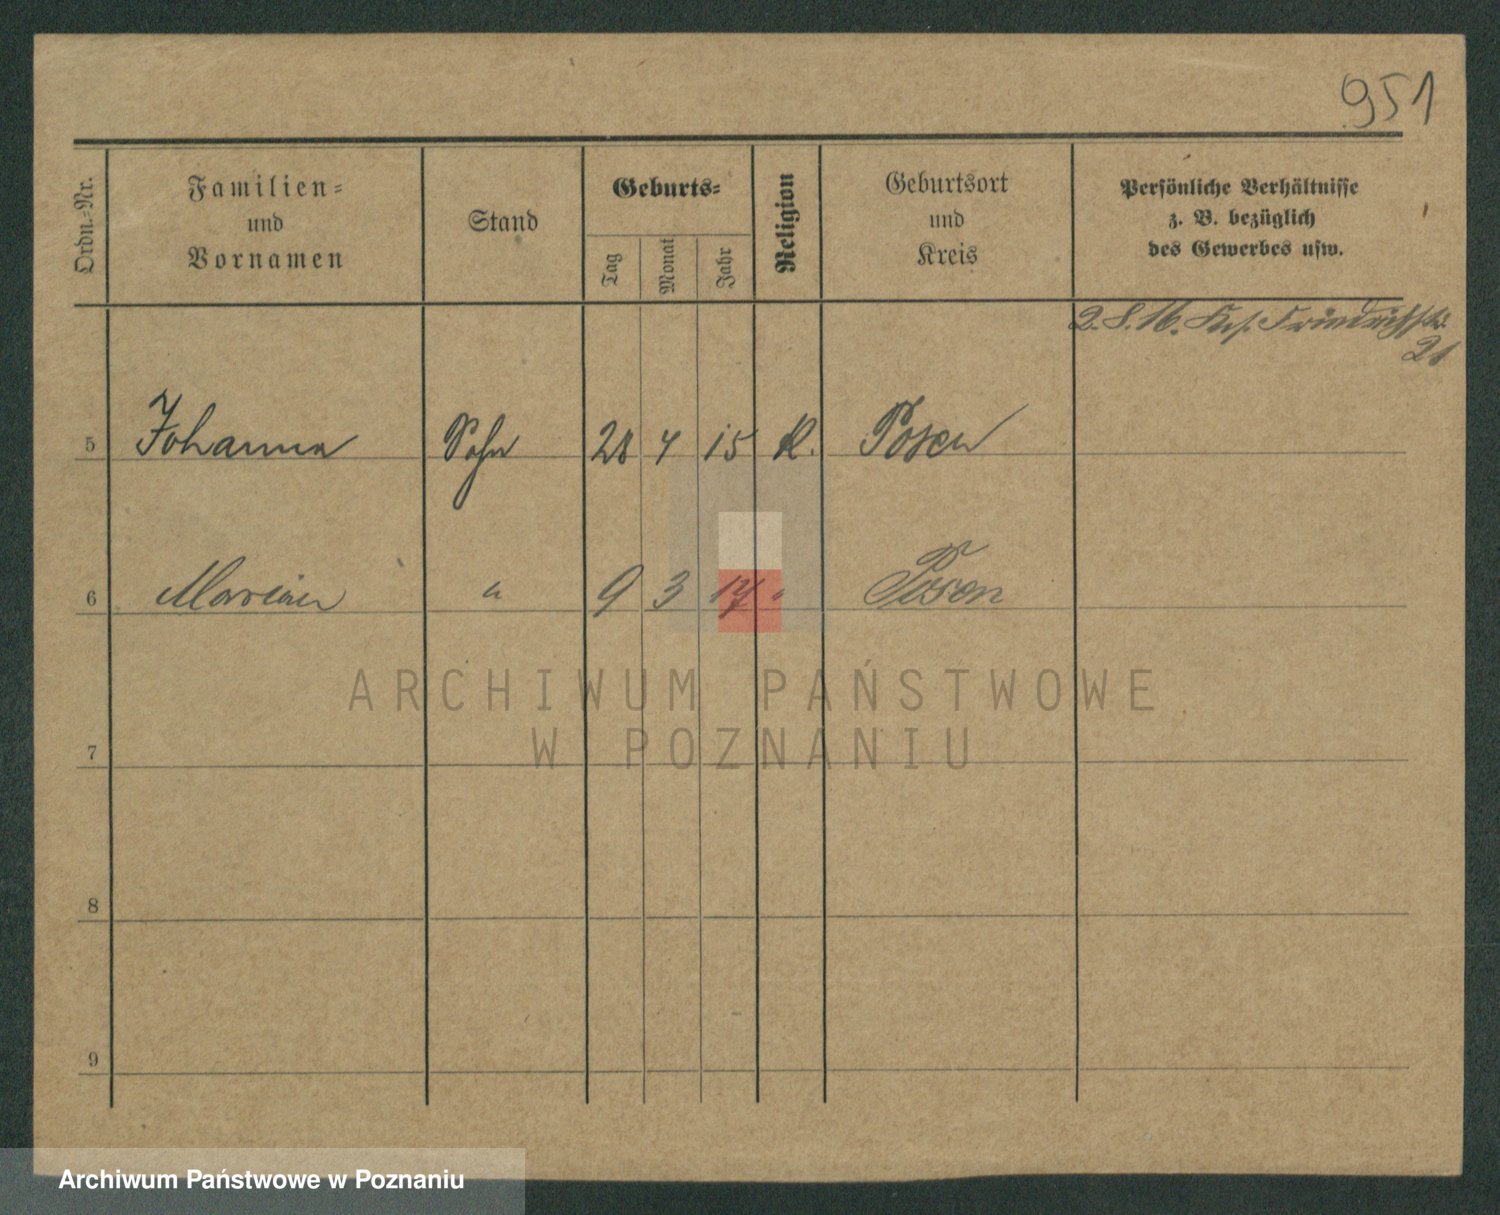 951
Ordn.=Nr.
Familien=
und
Vornamen
Stand
Geburts=
Tag
Monat
Jahr
Religion
Geburtsort
und
Kreis
Persönliche Verhältnisse
z. B. bezüglich
des Gewerbes usw.
2. 8. 16. Friedrichstr.
21
5 Johanna Sohn 28 4 15 K. Posen
6 Marian " 9 3 17 " Posen
7
8
9
ARCHIWUM PAŃSTWOWE
W POZNANIU
Archiwum Państwowe w Poznaniu